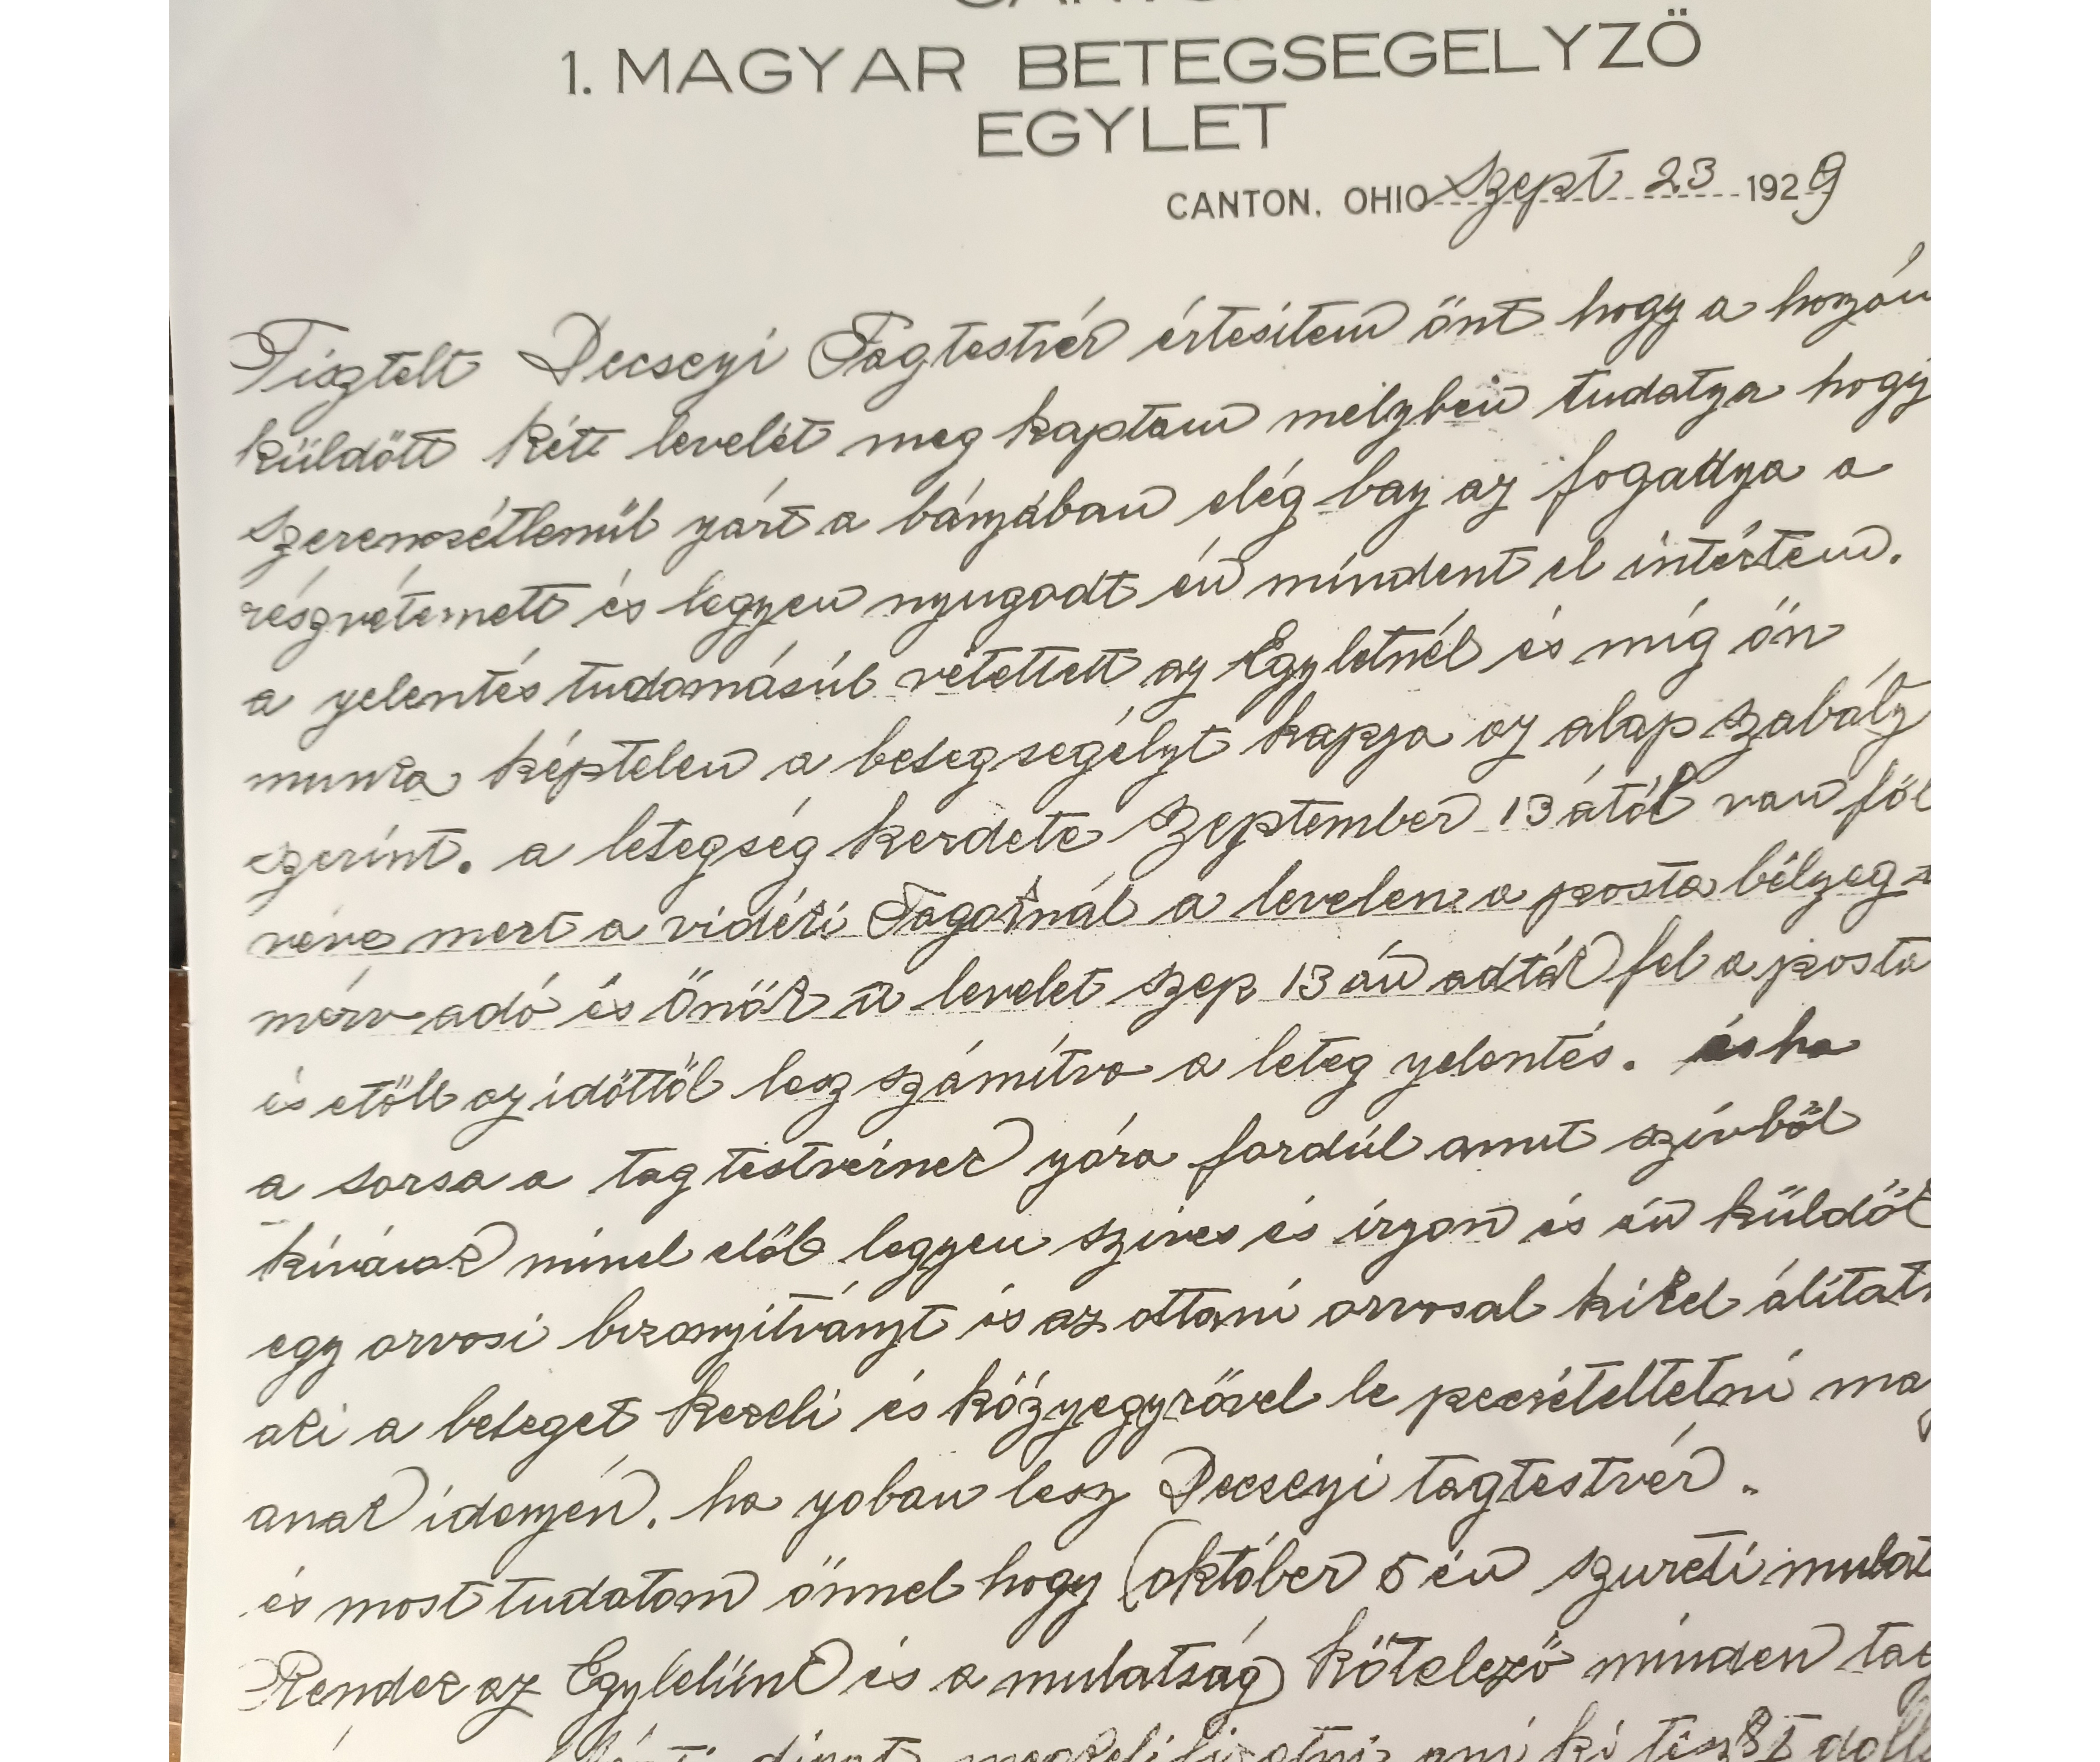 1. MAGYAR BETEGSEGELYZÖ
EGYLET
CANTON, OHIO Szept 23 1929
Tisztelt Decseyi Tagtestvér értesitem önt hogy a hozám
küldött két levelét meg kaptam melyben tudatya hogy
szerencsétlenül yárt a bányában elég bay az fogadya a
részvétemett és legyen nyugodt én mindent el intéztem.
a yelentés tudomásúl vétettett az Egyletnél és míg ön
munka képtelen a betegsegélyt kapja az alap szabály
szerint. a letegség kezdete Szeptember 13 ától van föl
véve mert a vidéki Tagoknál a levelen a posta bélyeg
mérv adó és Önök a levelet szep 13 án adták fel a posta
és etöll az idöttöl lesz számítva a leteg yelentés. és ha
a sorsa a tag testvérnek yóra fordúl amit szívböl
kívánok minél elöb legyen szives és íryon és én küldök
egy orvosi bizonyitványt és az ottani orvosal ki kel álitat
aki a beteget kezeli és közyegyzövel le pecsételtetni ma
anak idenyén. ha yoban lesz Decseyi tagtestvér.
és most tudatom önnel hogy (október 5 én szureti mulat
Rendez az Egyletünk és a mulatság) kötelezö minden tag
megkel fizetni ami ki tesz $1 doll